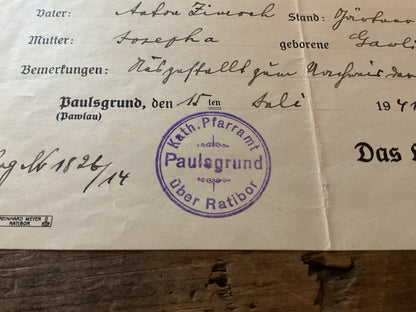 Vater: Anton Zimoch Stand: Gärtner
Mutter: Josepha geborene
Bemerkungen: Ausgestellt zum Nachweis der
Paulsgrund, den 15 ten Juli 194
(Pawlau)
Kath. Pfarramt
Paulsgrund
über Ratibor
Das
No 1826/14
REINHARD MEYER
RATIBOR